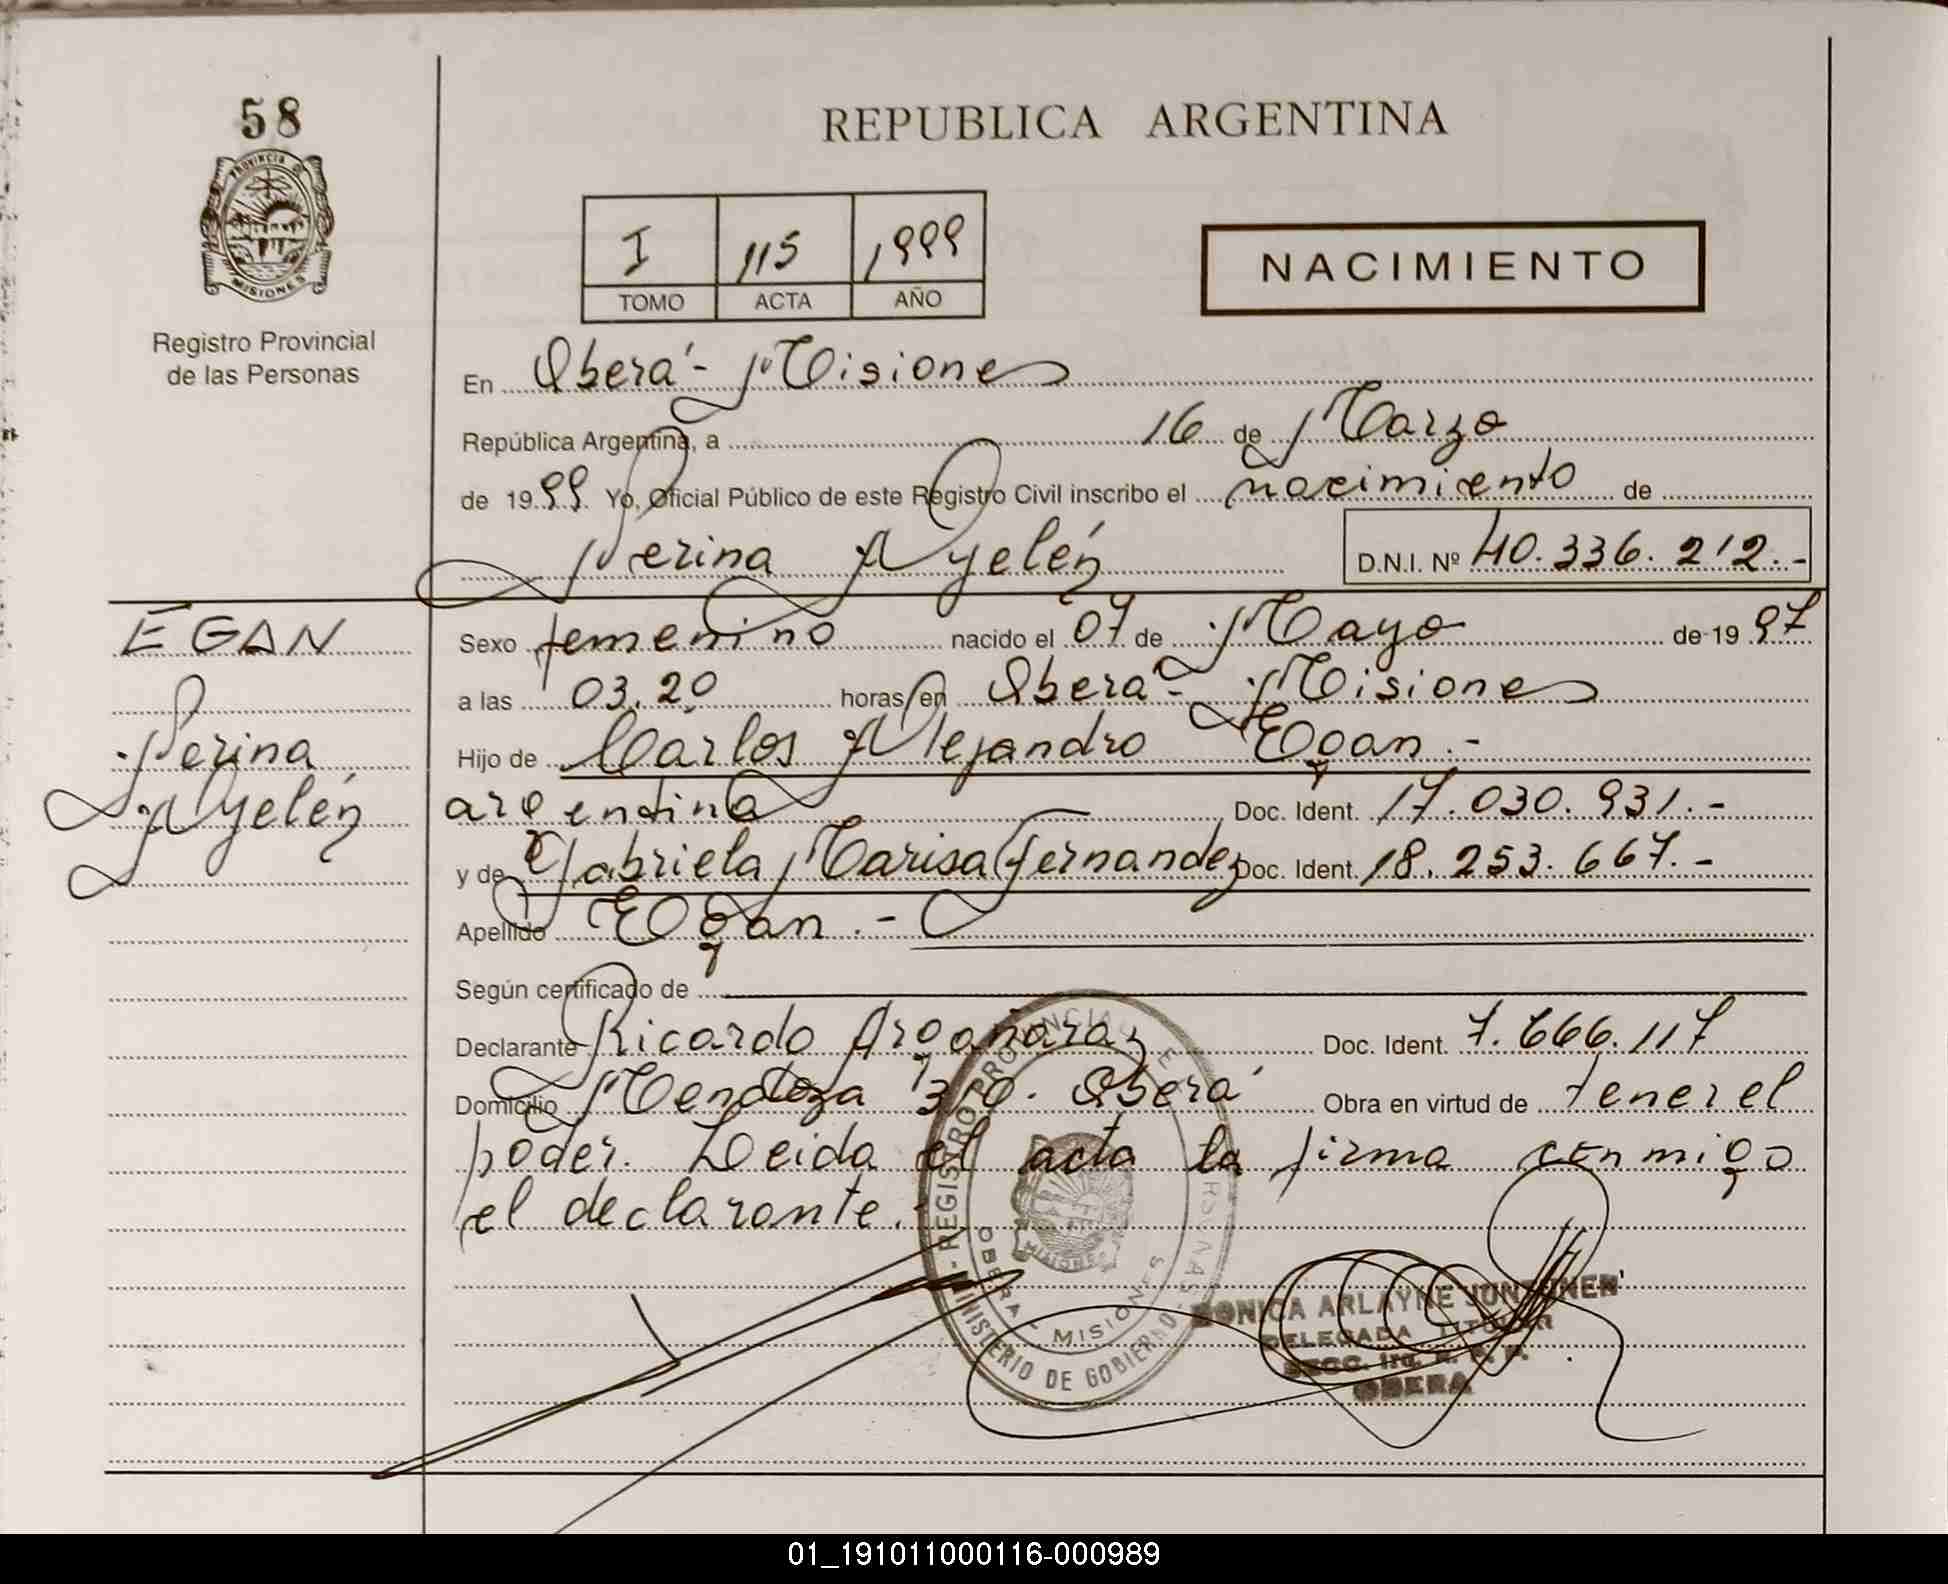 58
PROVINCIA D
MISIONES
Registro Provincial
de las Personas
REPUBLICA ARGENTINA
I 115 1999
TOMO ACTA AÑO
NACIMIENTO
En Oberá - Misiones
República Argentina, a 16 de Marzo
de 1999 Yo, Oficial Público de este Registro Civil inscribo el nacimiento de
Yerina Ayelén D.N.I. Nº 40.336.212.-
EGAN
Yerina
Ayelén
Sexo femenino nacido el 07 de Mayo de 1997
a las 03.20 horas en Oberá - Misiones
Hijo de Carlos Alejandro Egan.-
argentina Doc. Ident. 17.030.931.-
y de Gabriela Marisa Fernandez Doc. Ident. 18.253.667.-
Apellido Egan.-
Según certificado de
Declarante Ricardo Argañaraz Doc. Ident. 7.666.117
Domicilio Mendoza 310. Oberá Obra en virtud de tener el
poder. Leida el acta la firma conmigo
el declarante.-
REGISTRO PROVINCIAL
MINISTERIO DE GOBIERNO
OBERA - MISIONES
MISIONES
ARLAYNE
DELEGADA TITULAR
OBERA
01_191011000116-000989